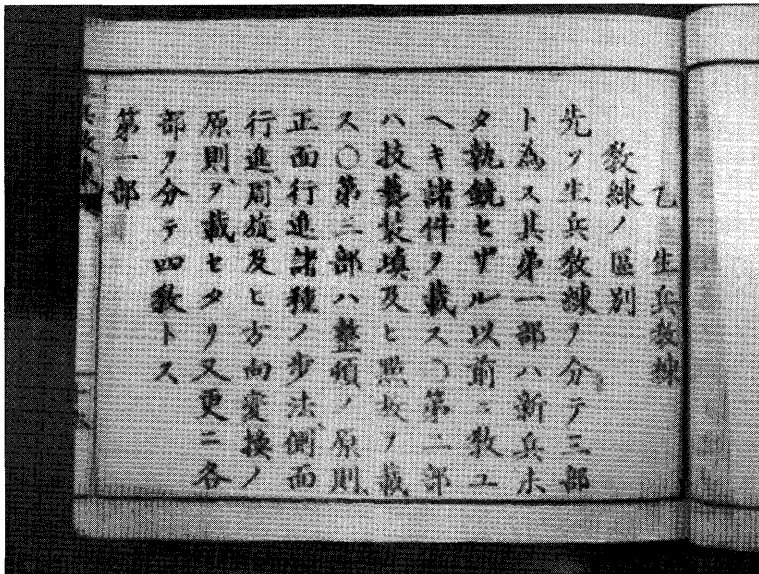 乙 生兵教練
教練ノ區別
先ツ生兵教練ヲ分テ三部
ト為ス其第一部ハ新兵ホ
タ執銃セザル以前ニ教ユ
ヘキ諸件ヲ載ス〇第二部
ハ技藝裝填及ヒ照坂ヲ載
ス〇第二部ハ整頓ノ原則、
正面行進諸種ノ步法、側面
行進、周旋及ヒ方向変換ノ
原則ヲ、載セタリ又更ニ各
部ヲ分テ四教トス
第一部